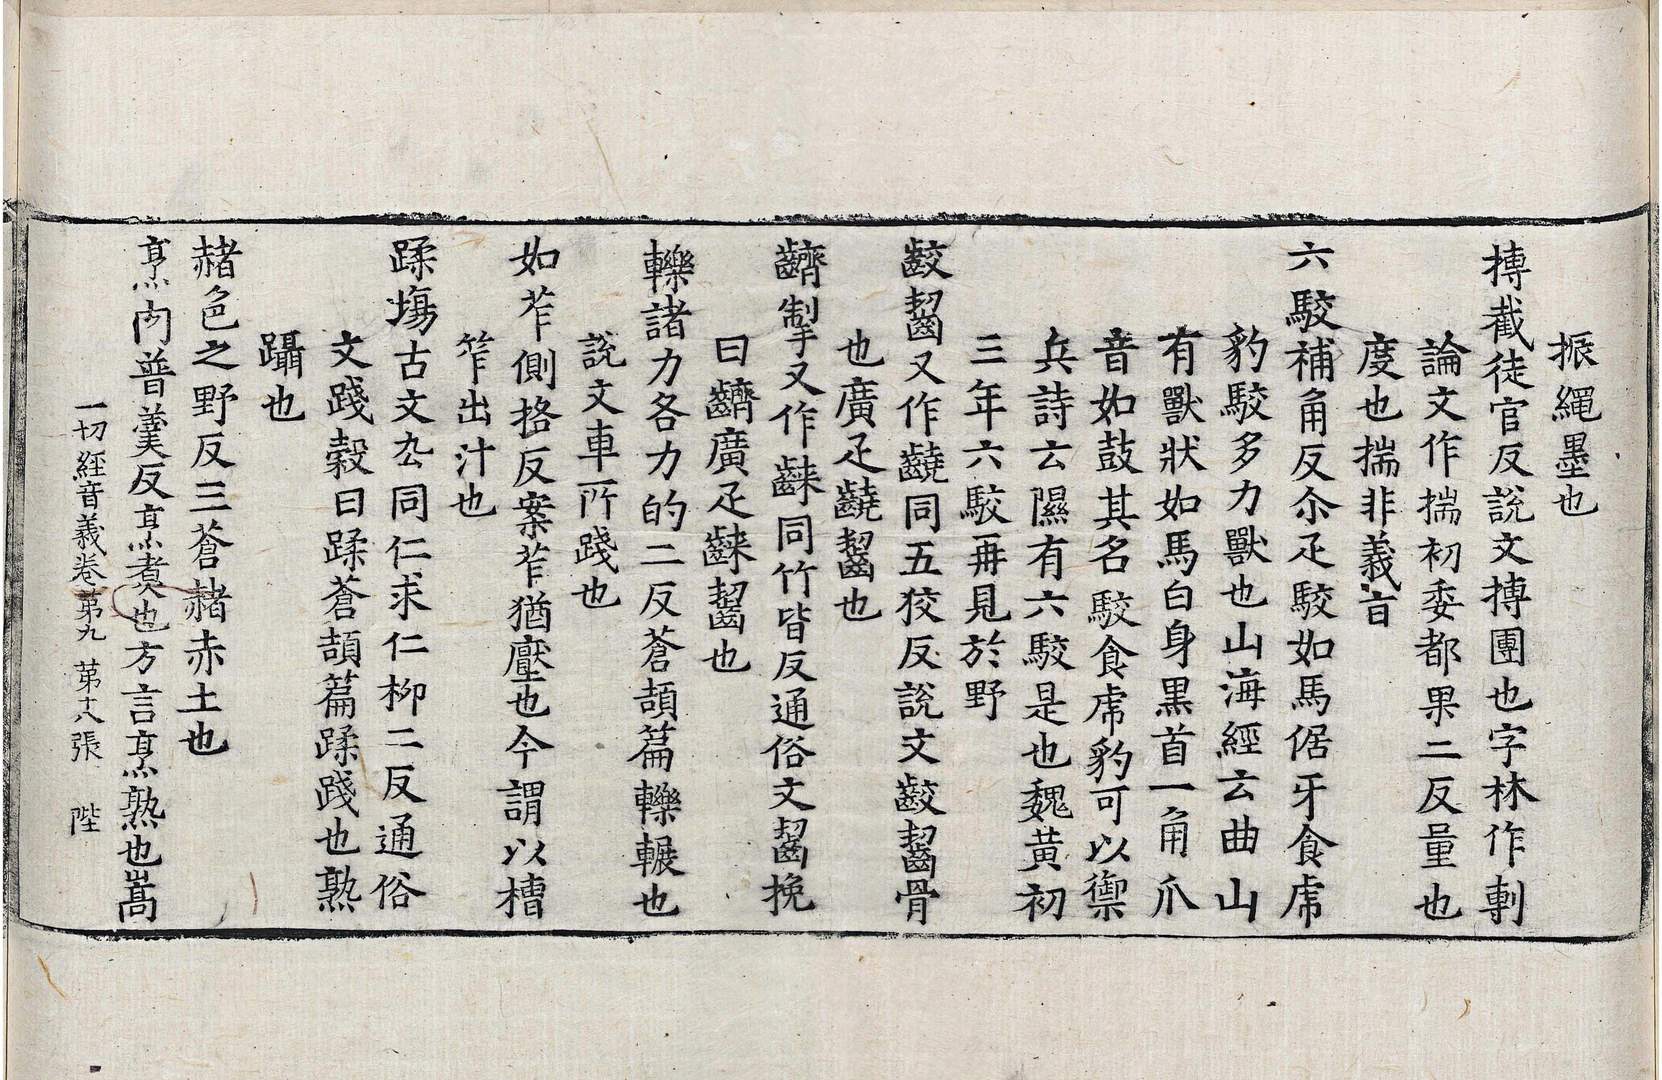 振繩墨也
摶截徒官反說文摶團也字林作剸
論文作揣初委都果二反量也
度也揣非義㫖
六駮補角反尒疋駮如馬倨牙食虎
豹駮多力獸也山海經云曲山
有獸狀如馬白身黒首一角爪
音如鼓其名駮食虎豹可以禦
兵詩云隰有六駮是也魏黃初
三年六駮再見於野
齩齧又作䶧同五狡反說文齩齧骨
也廣疋䶧齧也
齌掣又作�made同竹皆反通俗文齧挽
曰齌廣疋齧也
轢諸力各力的二反蒼頡篇轢輾也
說文車所踐也
如苲側格反案苲猶壓也今謂以槽
笮出汁也
蹂場古文厹同仁求仁柳二反通俗
文踐穀曰蹂蒼頡篇蹂踐也熟
躡也
赭色之野反三蒼赭赤土也
烹肉普羹反烹煮也方言烹熟也嵩
一切經音義卷第九 第十八張 陛